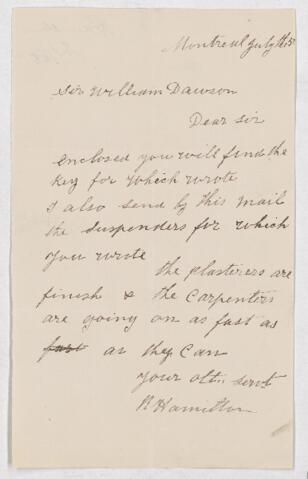 Montreal July 15
Sir William Dawson
Dear Sir
enclosed you will find the
Key for which wrote
I also send by this mail
the suspenders for which
you wrote
the plasterers are
finish & the carpenters
are going on as fast as
fast as they can
your obt servt
Hamilton